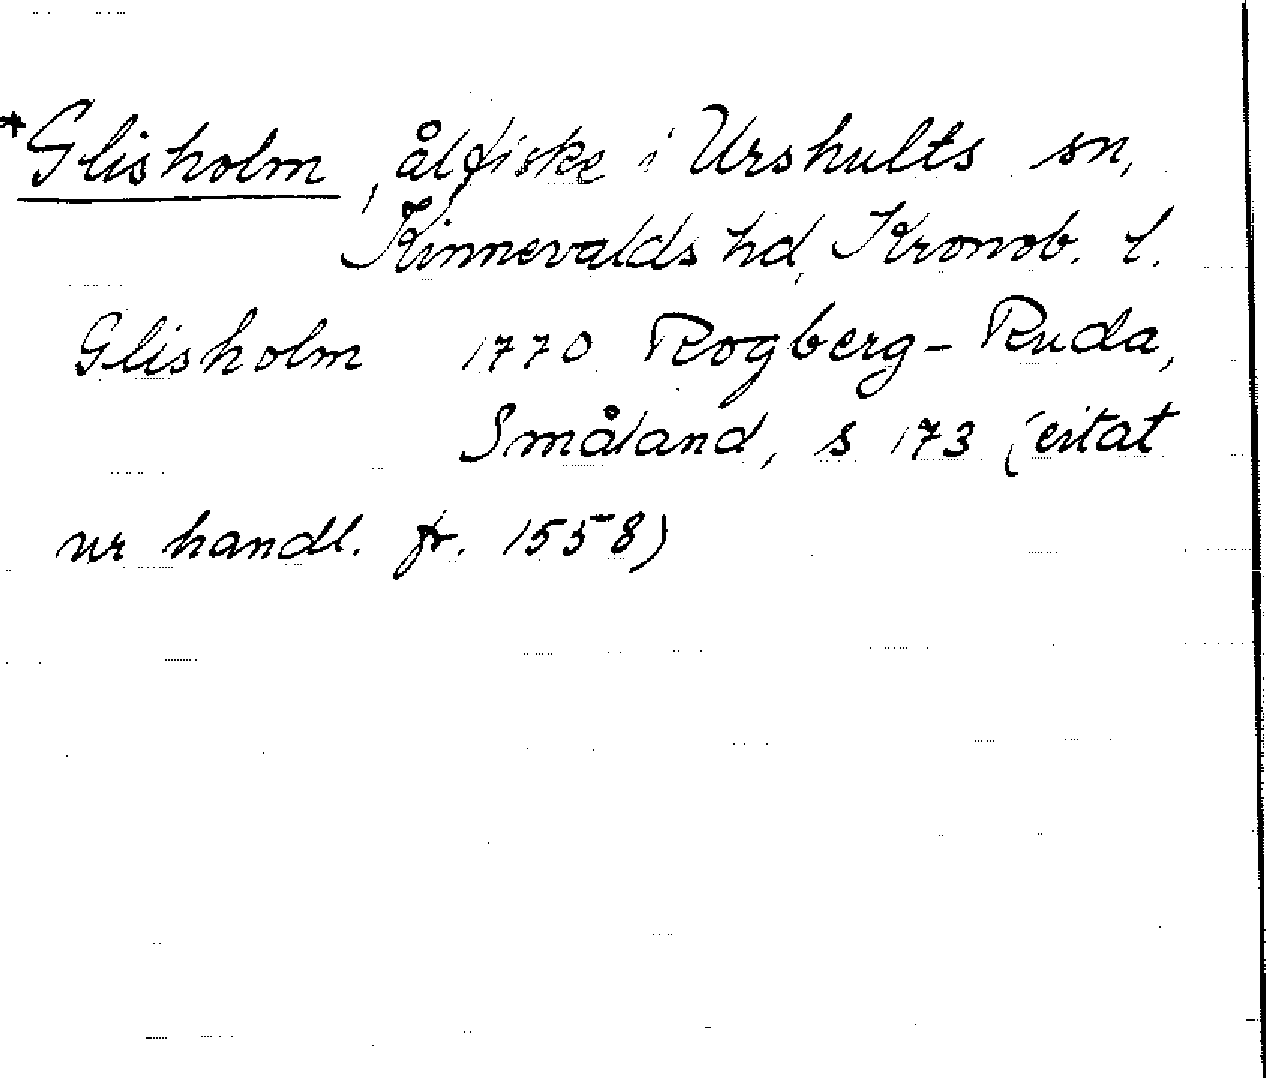 *Glisholm, ålfiske i Urshults sn,
Kinnevalds hd, Kronob. l.
Glisholm 1770 Rogberg-Ruda,
Småland, s 173 (citat
ur handl. fr. 1558)